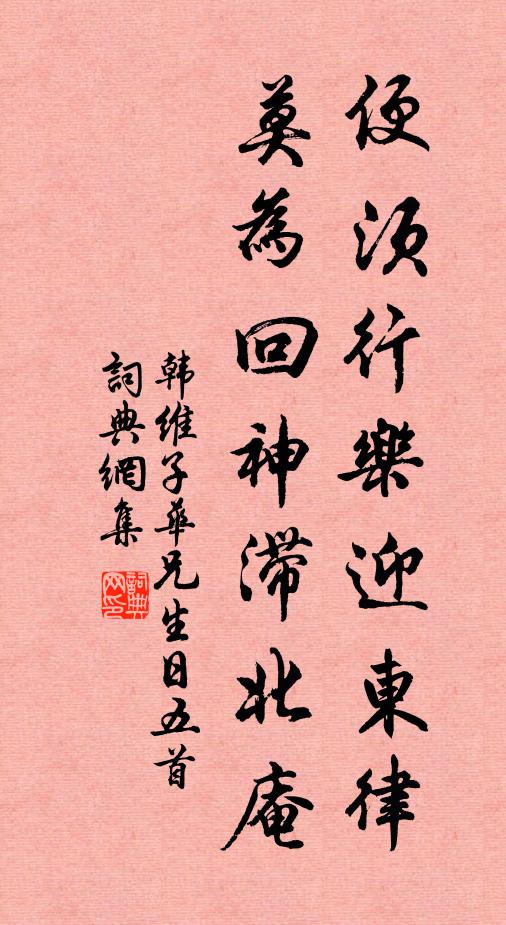 便須行樂迎東律
莫為回神滯北庵
韩維子華兄生日五首
詞典網集
詞典网印